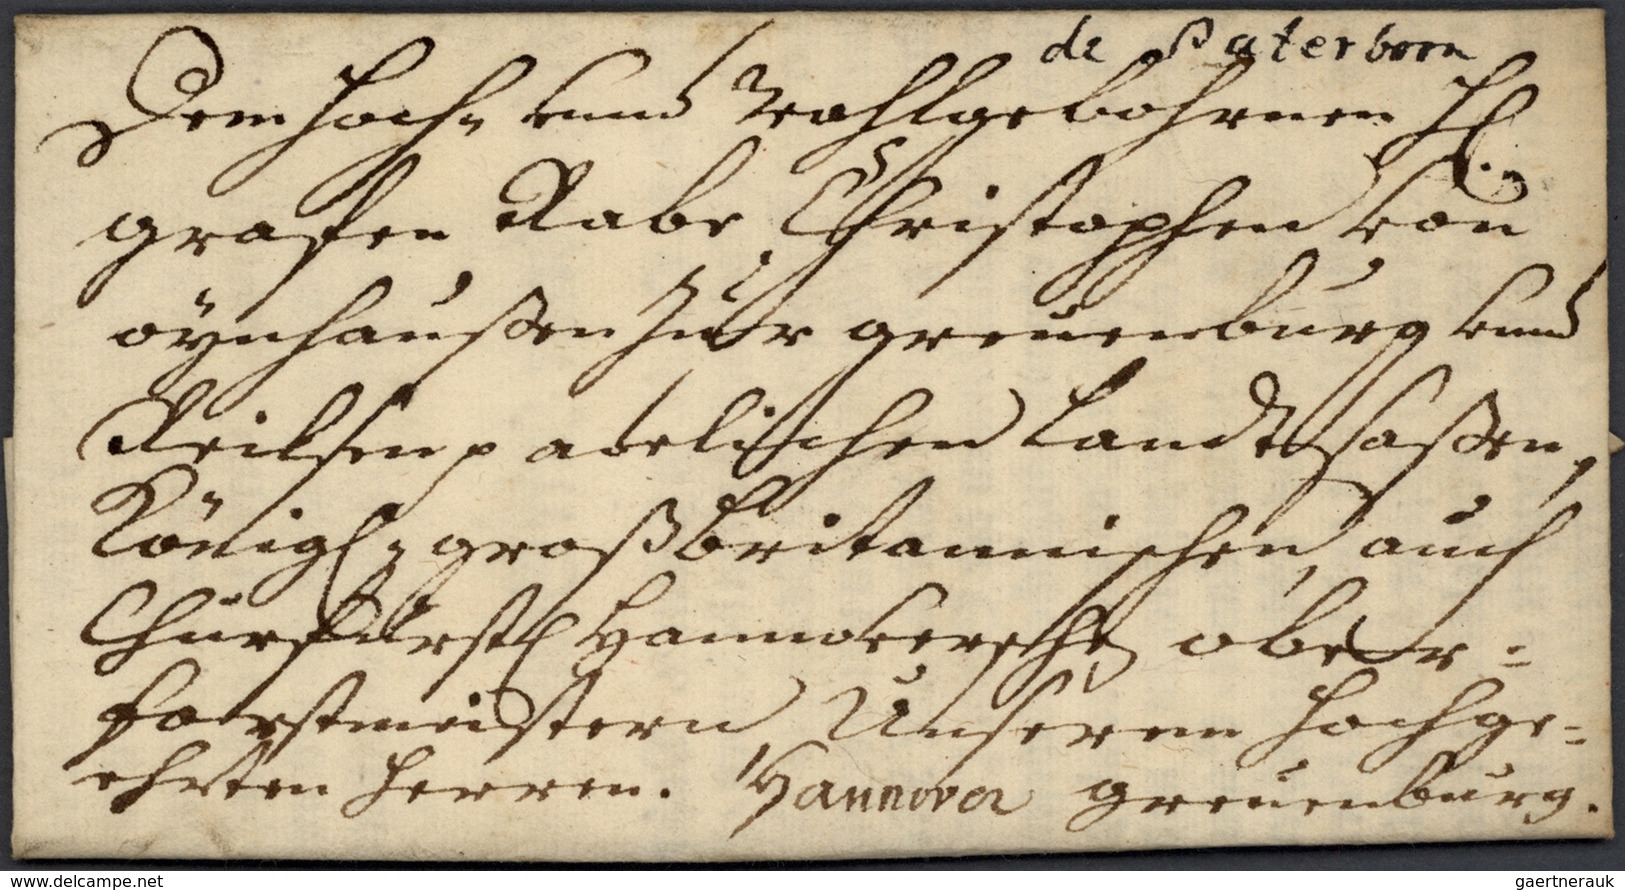 de Paterborn
Dem hoch- und Wohlgebohrnen H
grafen Rabe Christophen von
öynhaußen zur greuenburg und
Reilsen p adelischen Landtsaßen,
Königl: großbritannischen, auch
Churfürstl Hannoversche ober=
forstmeistern, Unserem hochge=
ehrten Herren. Hannover greuenburg.
www.delcampe.net
gaertnerauk